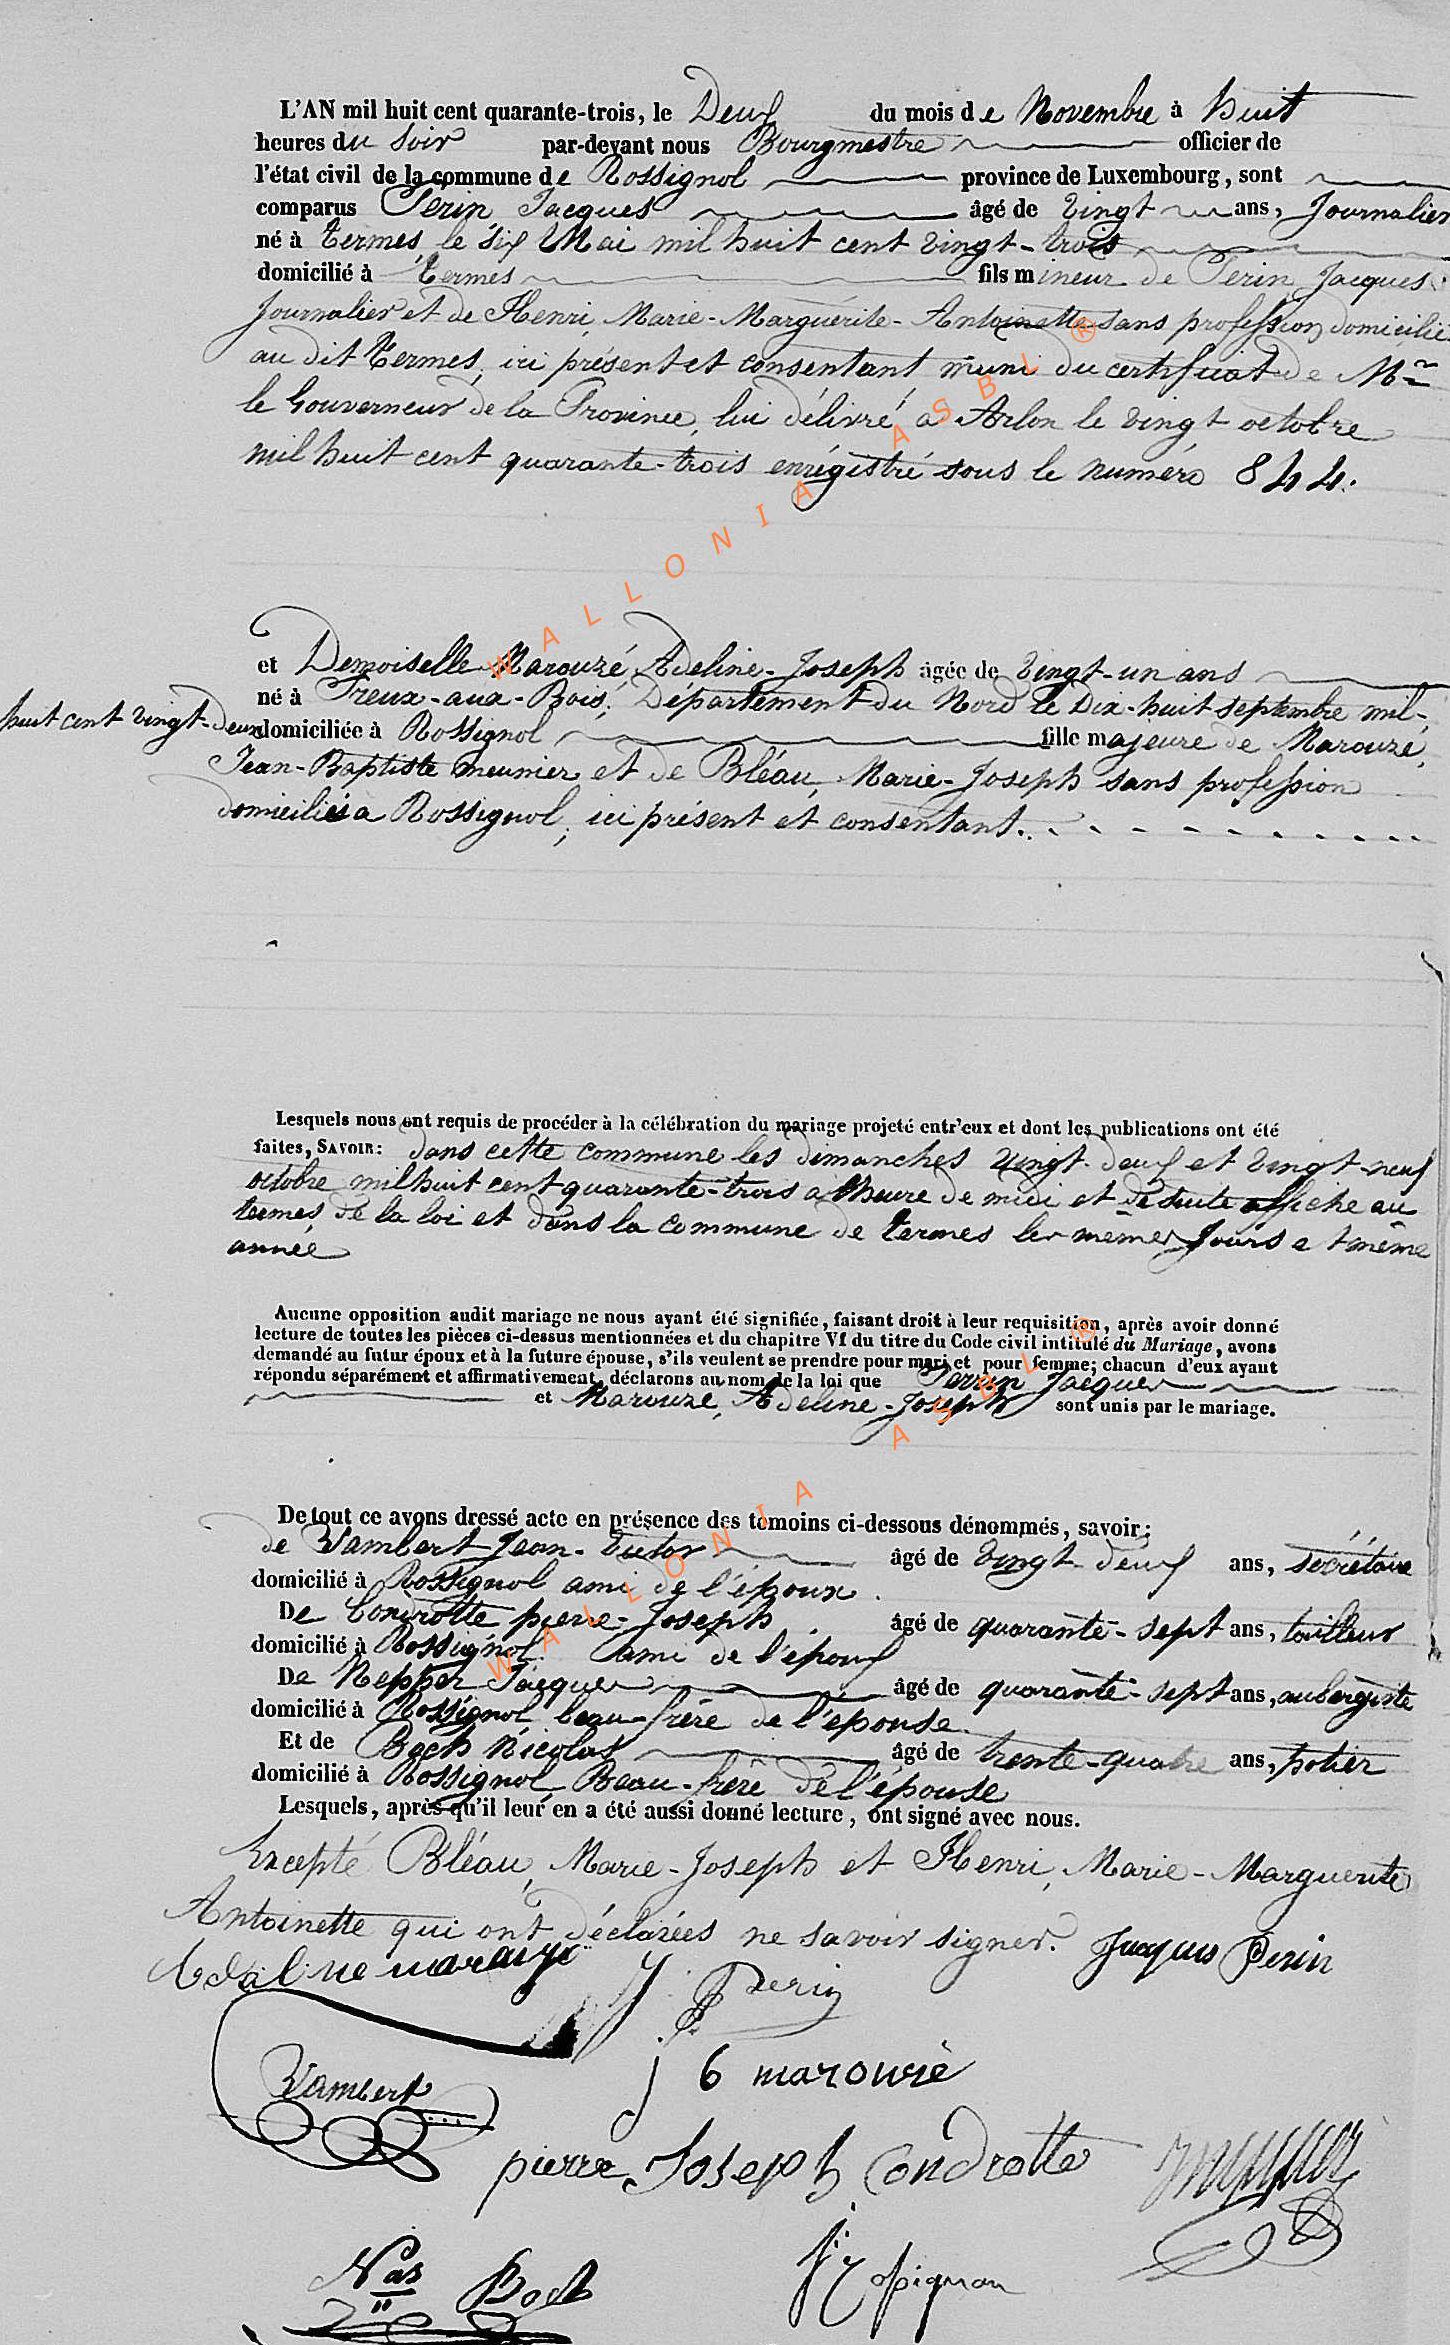 L'AN mil huit cent quarante-trois, le Deux du mois de Novembre à huit
heures du soir par-devant nous Bourgmestre officier de
l'état civil de la commune de Rossignol province de Luxembourg, sont
comparus Perin Jacques âgé de vingt ans, Journalier
né à Termes, le six Mai mil huit cent vingt-trois
domicilié à Termes fils mineur de Perin Jacques
Journalier et de Henri, Marie-Marguerite-Antoinette sans profession domiciliés
au dit Termes, ici présent et consentant muni du certificat de Mr
le Gouverneur de la Province, lui délivré a Arlon le vingt octobre
mil huit cent quarante-trois enrégistré sous le numéro 844.
et Demoiselle Marouzé, Adeline-Joseph âgée de vingt-un ans
né à Preux-aux-Bois, Département du Nord le Dix-huit septembre mil-
huit cent vingt-deux domiciliée à Rossignol fille majeure de Marouzé,
Jean-Baptiste meunier et de Bléau, Marie-Joseph sans profession
domiciliés a Rossignol, ici présent et consentant.
Lesquels nous ont requis de procéder à la célébration du mariage projeté entr'eux et dont les publications ont été
faites, SAVOIR: dans cette commune les dimanches vingt-deux et vingt-neuf
octobre mil huit cent quarante-trois a l'heure de midi et de suite affiché au
termes de la loi et dans la commune de Termes les mêmes jours et même
année
Aucune opposition audit mariage ne nous ayant été signifiée, faisant droit à leur requisition, après avoir donné
lecture de toutes les pièces ci-dessus mentionnées et du chapitre VI du titre du Code civil intitulé du Mariage, avons
demandé au futur époux et à la future épouse, s'ils veulent se prendre pour mari et pour femme; chacun d'eux ayant
répondu séparément et affirmativement, déclarons au nom de la loi que Perrin Jacques
et Marouzé, Adeline-Joseph sont unis par le mariage.
De tout ce avons dressé acte en présence des témoins ci-dessous dénommés, savoir:
de Wambert Jean-Victor âgé de vingt-deux ans, sécrétaire
domicilié à Rossignol ami de l'époux.
De Condrotte pierre-Joseph âgé de quarante-sept ans, tailleur
domicilié à Rossignol ami de l'époux
De Nepper Jacques âgé de quarante-sept ans, aubergiste
domicilié à Rossignol beau-frère de l'épouse
Et de Boch Nicolas âgé de trente-quatre ans, potier
domicilié à Rossignol Beau-frère de l'épouse
Lesquels, après qu'il leur en a été aussi donné lecture, ont signé avec nous.
Excepté Bléau, Marie-Joseph et Henri, Marie-Marguerite
Antoinette qui ont déclarées ne savoir signer. Jacques Perin
J. Perin
Wambert j 6 marouzé
pierre Joseph Condrotte
Nas Boch
WALLONIA ASBL ®
WALLONIA ASBL ®